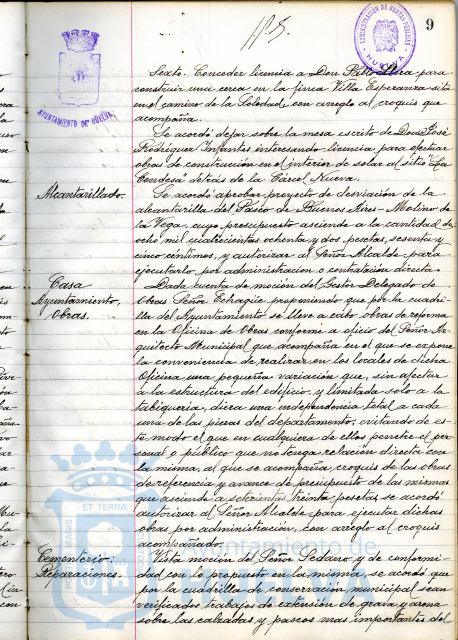 9
AYUNTAMIENTO DE HUELVA
ADMINISTRACIÓN DE RENTAS PÚBLICAS
HUELVA
Sexto. Conceder licencia a Don Pablo para
construir una cerca en la finca Villa Esperanza sita
en el camino de la Soledad, con arreglo al croquis que
acompaña.
Se acordó dejar sobre la mesa escrito de Don José
Rodríguez Infantes interesando licencia para efectuar
obras de construcción en el interior de solar al sitio "La
Condesa" detrás de la Cárcel Nueva.
Alcantarillado.
Se acordó aprobar proyecto de desviación de la
alcantarilla del Paseo de Buenos Aires-Molino de
la Vega, cuyo presupuesto asciende a la cantidad de
ocho mil cuatrocientas ochenta y dos pesetas, sesenta y
cinco céntimos, y autorizar al Señor Alcalde para
ejecutarlo por administración o contratación directa.
Casa
Ayuntamiento,
Obras.
Dada cuenta de moción del Gestor Delegado de
Obras Señor Echagüe proponiendo que por la cuadri-
lla del Ayuntamiento se lleve a cabo obras de reforma
en la Oficina de Obras conforme a oficio del Señor Ar-
quitecto Municipal que acompaña en el que se expone
la conveniencia de realizar en los locales de dicha
Oficina una pequeña variación que, sin afectar
a la estructura del edificio, y limitada solo a la
tabiquería, diera una independencia total a cada
una de las piezas del departamento, evitando de es-
te modo el que en cualquiera de ellos penetre el per-
sonal o público que no tenga relación directa con
la misma, al que se acompaña, croquis de las obras
de referencia y avance de presupuesto de las mismas
que asciende a setecientas treinta pesetas, se acordó
autorizar al Señor Alcalde para ejecutar dichas
obras por administración, con arreglo al croquis
acompañado.
Cementerio:
Reparaciones.
Vista moción del Señor Sedano y de conformi-
dad con lo propuesto en la misma, se acordó que
por la cuadrilla de conservación municipal sean
verificados trabajos de extensión de grava y arena
sobre las calzadas y paseos mas importantes del
ET TERRA
Ayuntamiento de